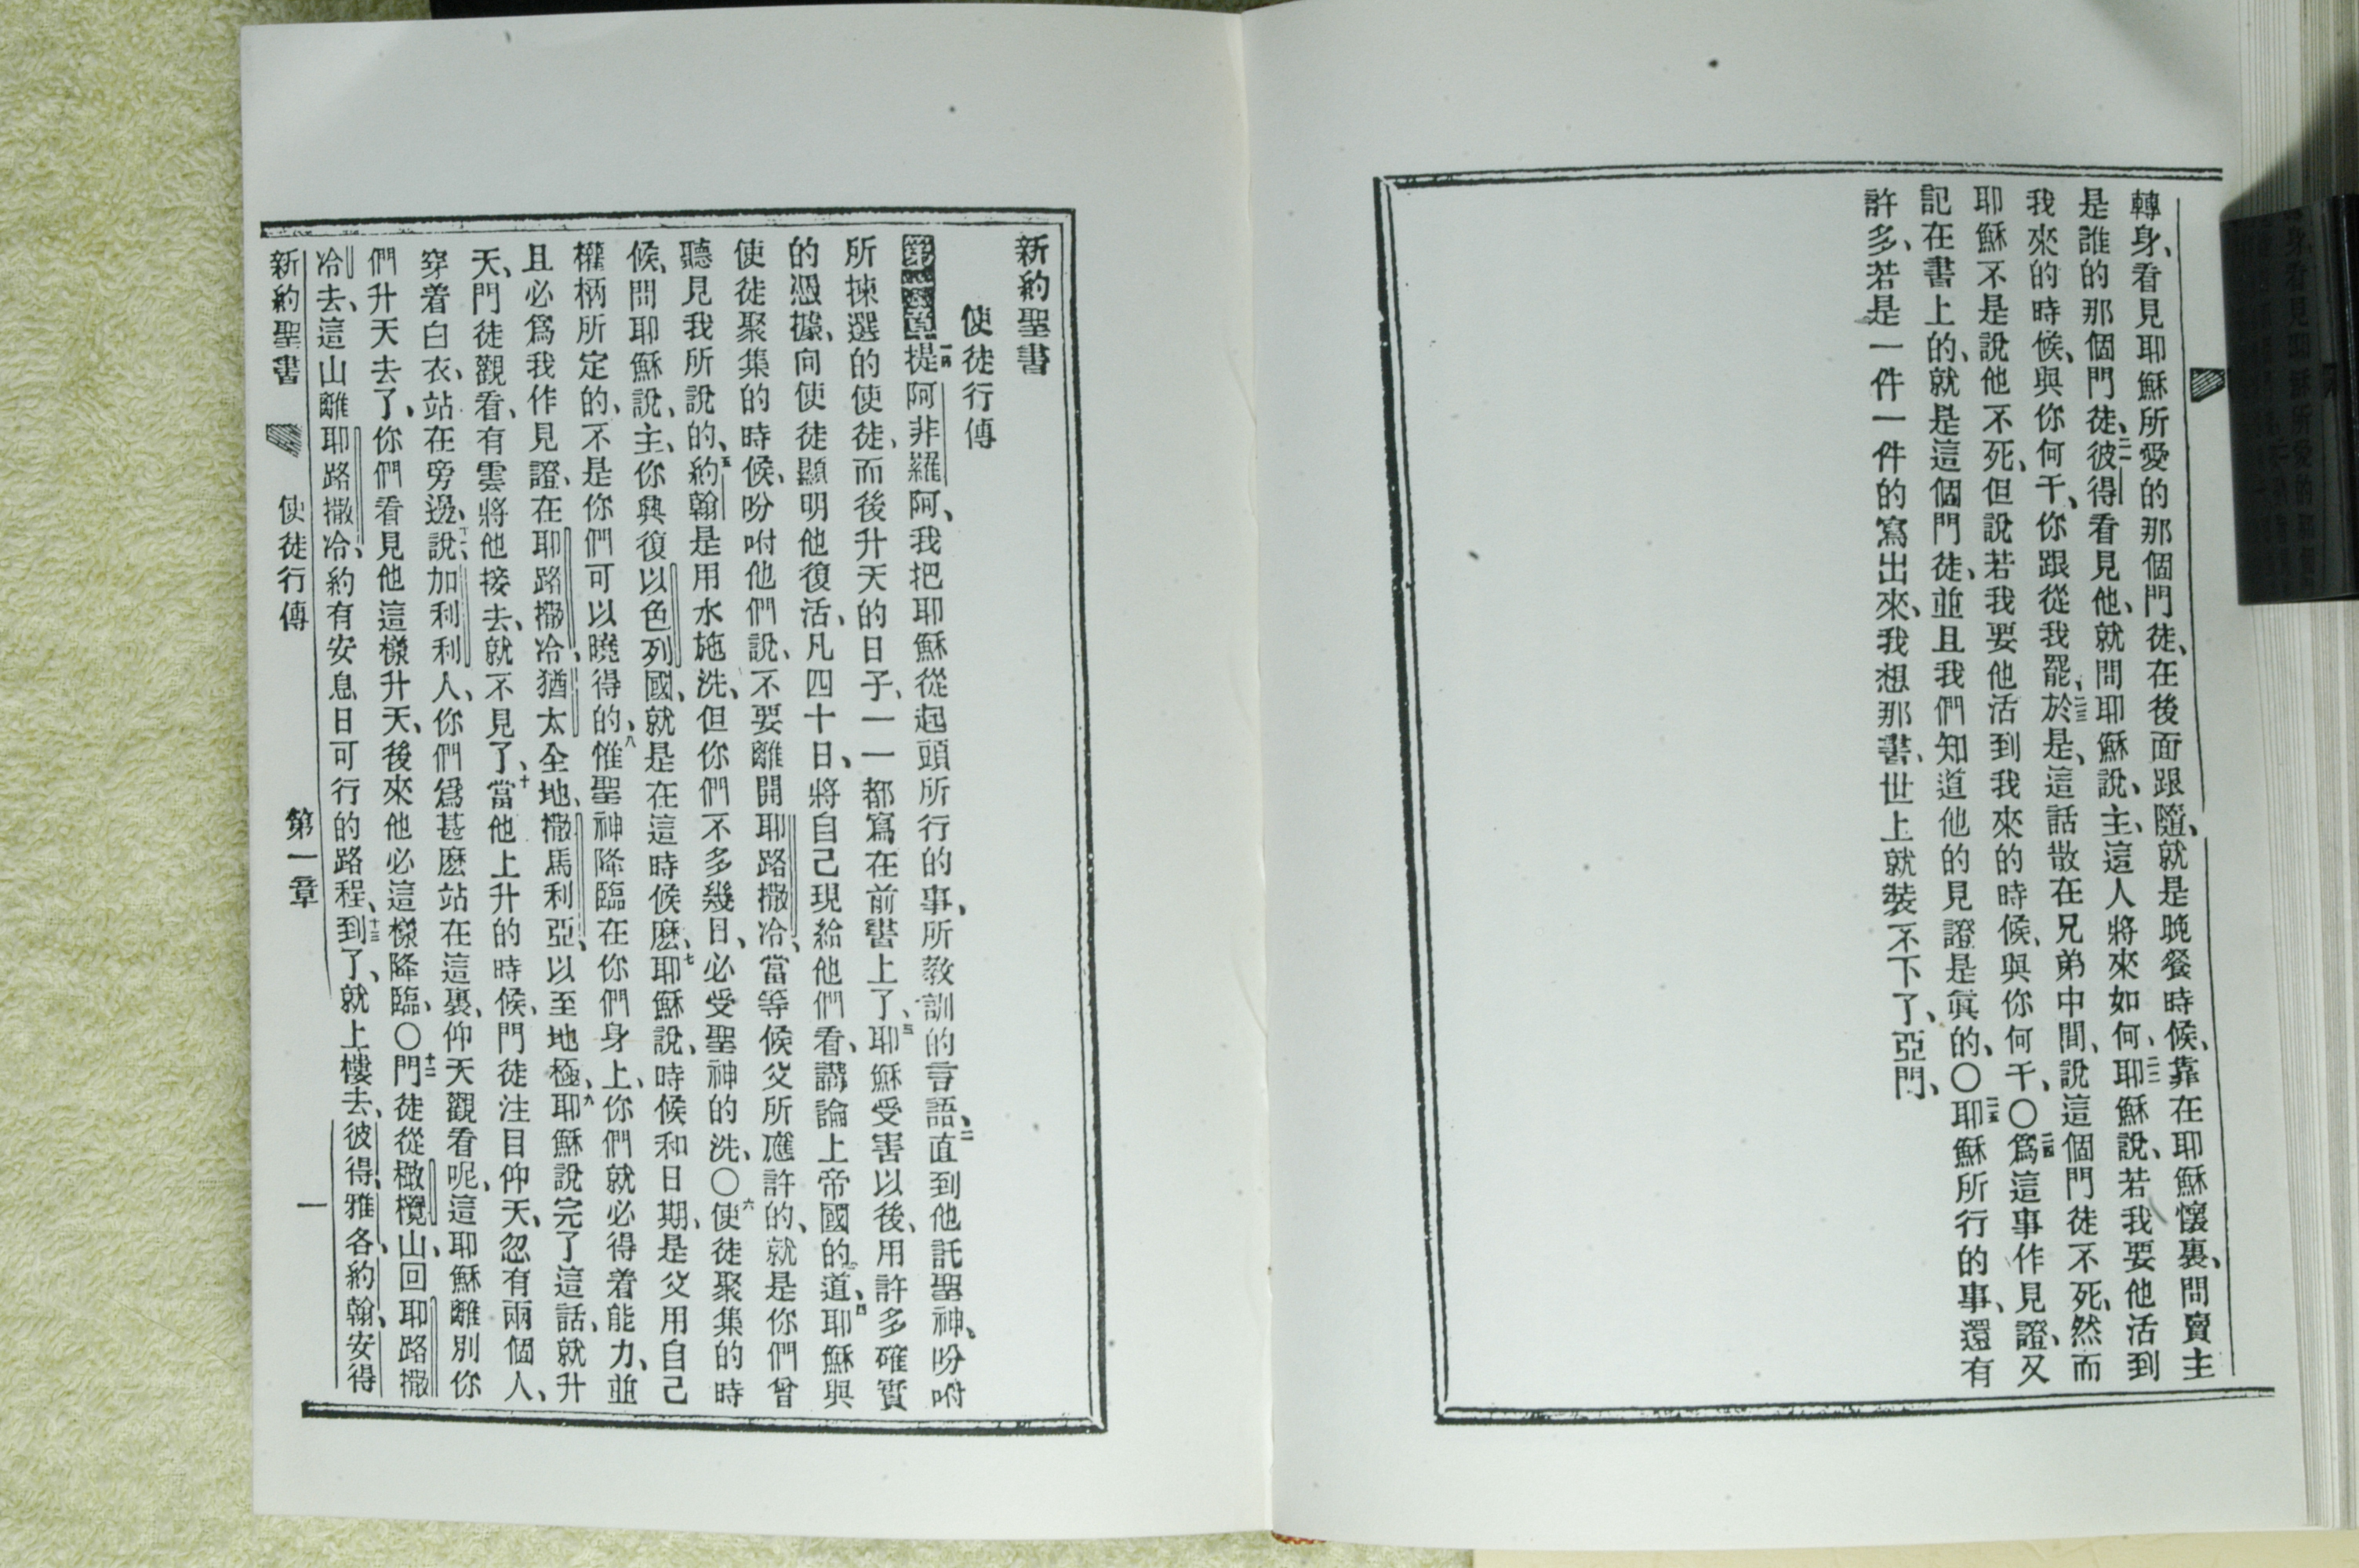 轉身、看見耶穌所愛的那個門徒、在後面跟隨、就是晚餐時候、靠在耶穌懷裏、問賣主
是誰的那個門徒、二一彼得看見他、就問耶穌說、主、這人將來如何、二二耶穌說、若我要他活到
我來的時候、與你何干、你跟從我罷、二三於是、這話散在兄弟中間、說這個門徒不死、然而
耶穌不是說他不死、但說若我要他活到我來的時候、與你何干、〇二四爲這事作見證、又
記在書上的、就是這個門徒、並且我們知道他的見證是眞的、〇二五耶穌所行的事、還有
許多、若是一件一件的寫出來、我想那書、世上就裝不下了、亞門、
新約聖書
使徒行傳
第一章一提阿非羅阿、我把耶穌從起頭所行的事、所教訓的言語、二直到他託聖神、吩咐
所揀選的使徒、而後升天的日子、一一都寫在前書上了、三耶穌受害以後、用許多確實
的憑據、向使徒顯明他復活、凡四十日、將自己現給他們看、講論上帝國的道、四耶穌與
使徒聚集的時候、吩咐他們說、不要離開耶路撒冷、當等候父所應許的、就是你們曾
聽見我所說的、五約翰是用水施洗、但你們不多幾日、必受聖神的洗、〇六使徒聚集的時
候、問耶穌說、主、你興復以色列國、就是在這時候麽、七耶穌說、時候和日期、是父用自己
權柄所定的、不是你們可以曉得的、八惟聖神降臨在你們身上、你們就必得着能力、並
且必爲我作見證、在耶路撒冷、猶太全地、撒馬利亞、以至地極、九耶穌說完了這話、就升
天、門徒觀看、有雲將他接去、就不見了、十當他上升的時候、門徒注目仰天、忽有兩個人、
穿着白衣、站在旁邊、十一說、加利利人、你們爲甚麽站在這裏、仰天觀看呢、這耶穌離別你
們升天去了、你們看見他這樣升天、後來他必這樣降臨、〇十二門徒從橄欖山、回耶路撒
冷去、這山離耶路撒冷、約有安息日可行的路程、十三到了、就上樓去、彼得、雅各、約翰、安得
新約聖書 使徒行傳 第一章 一